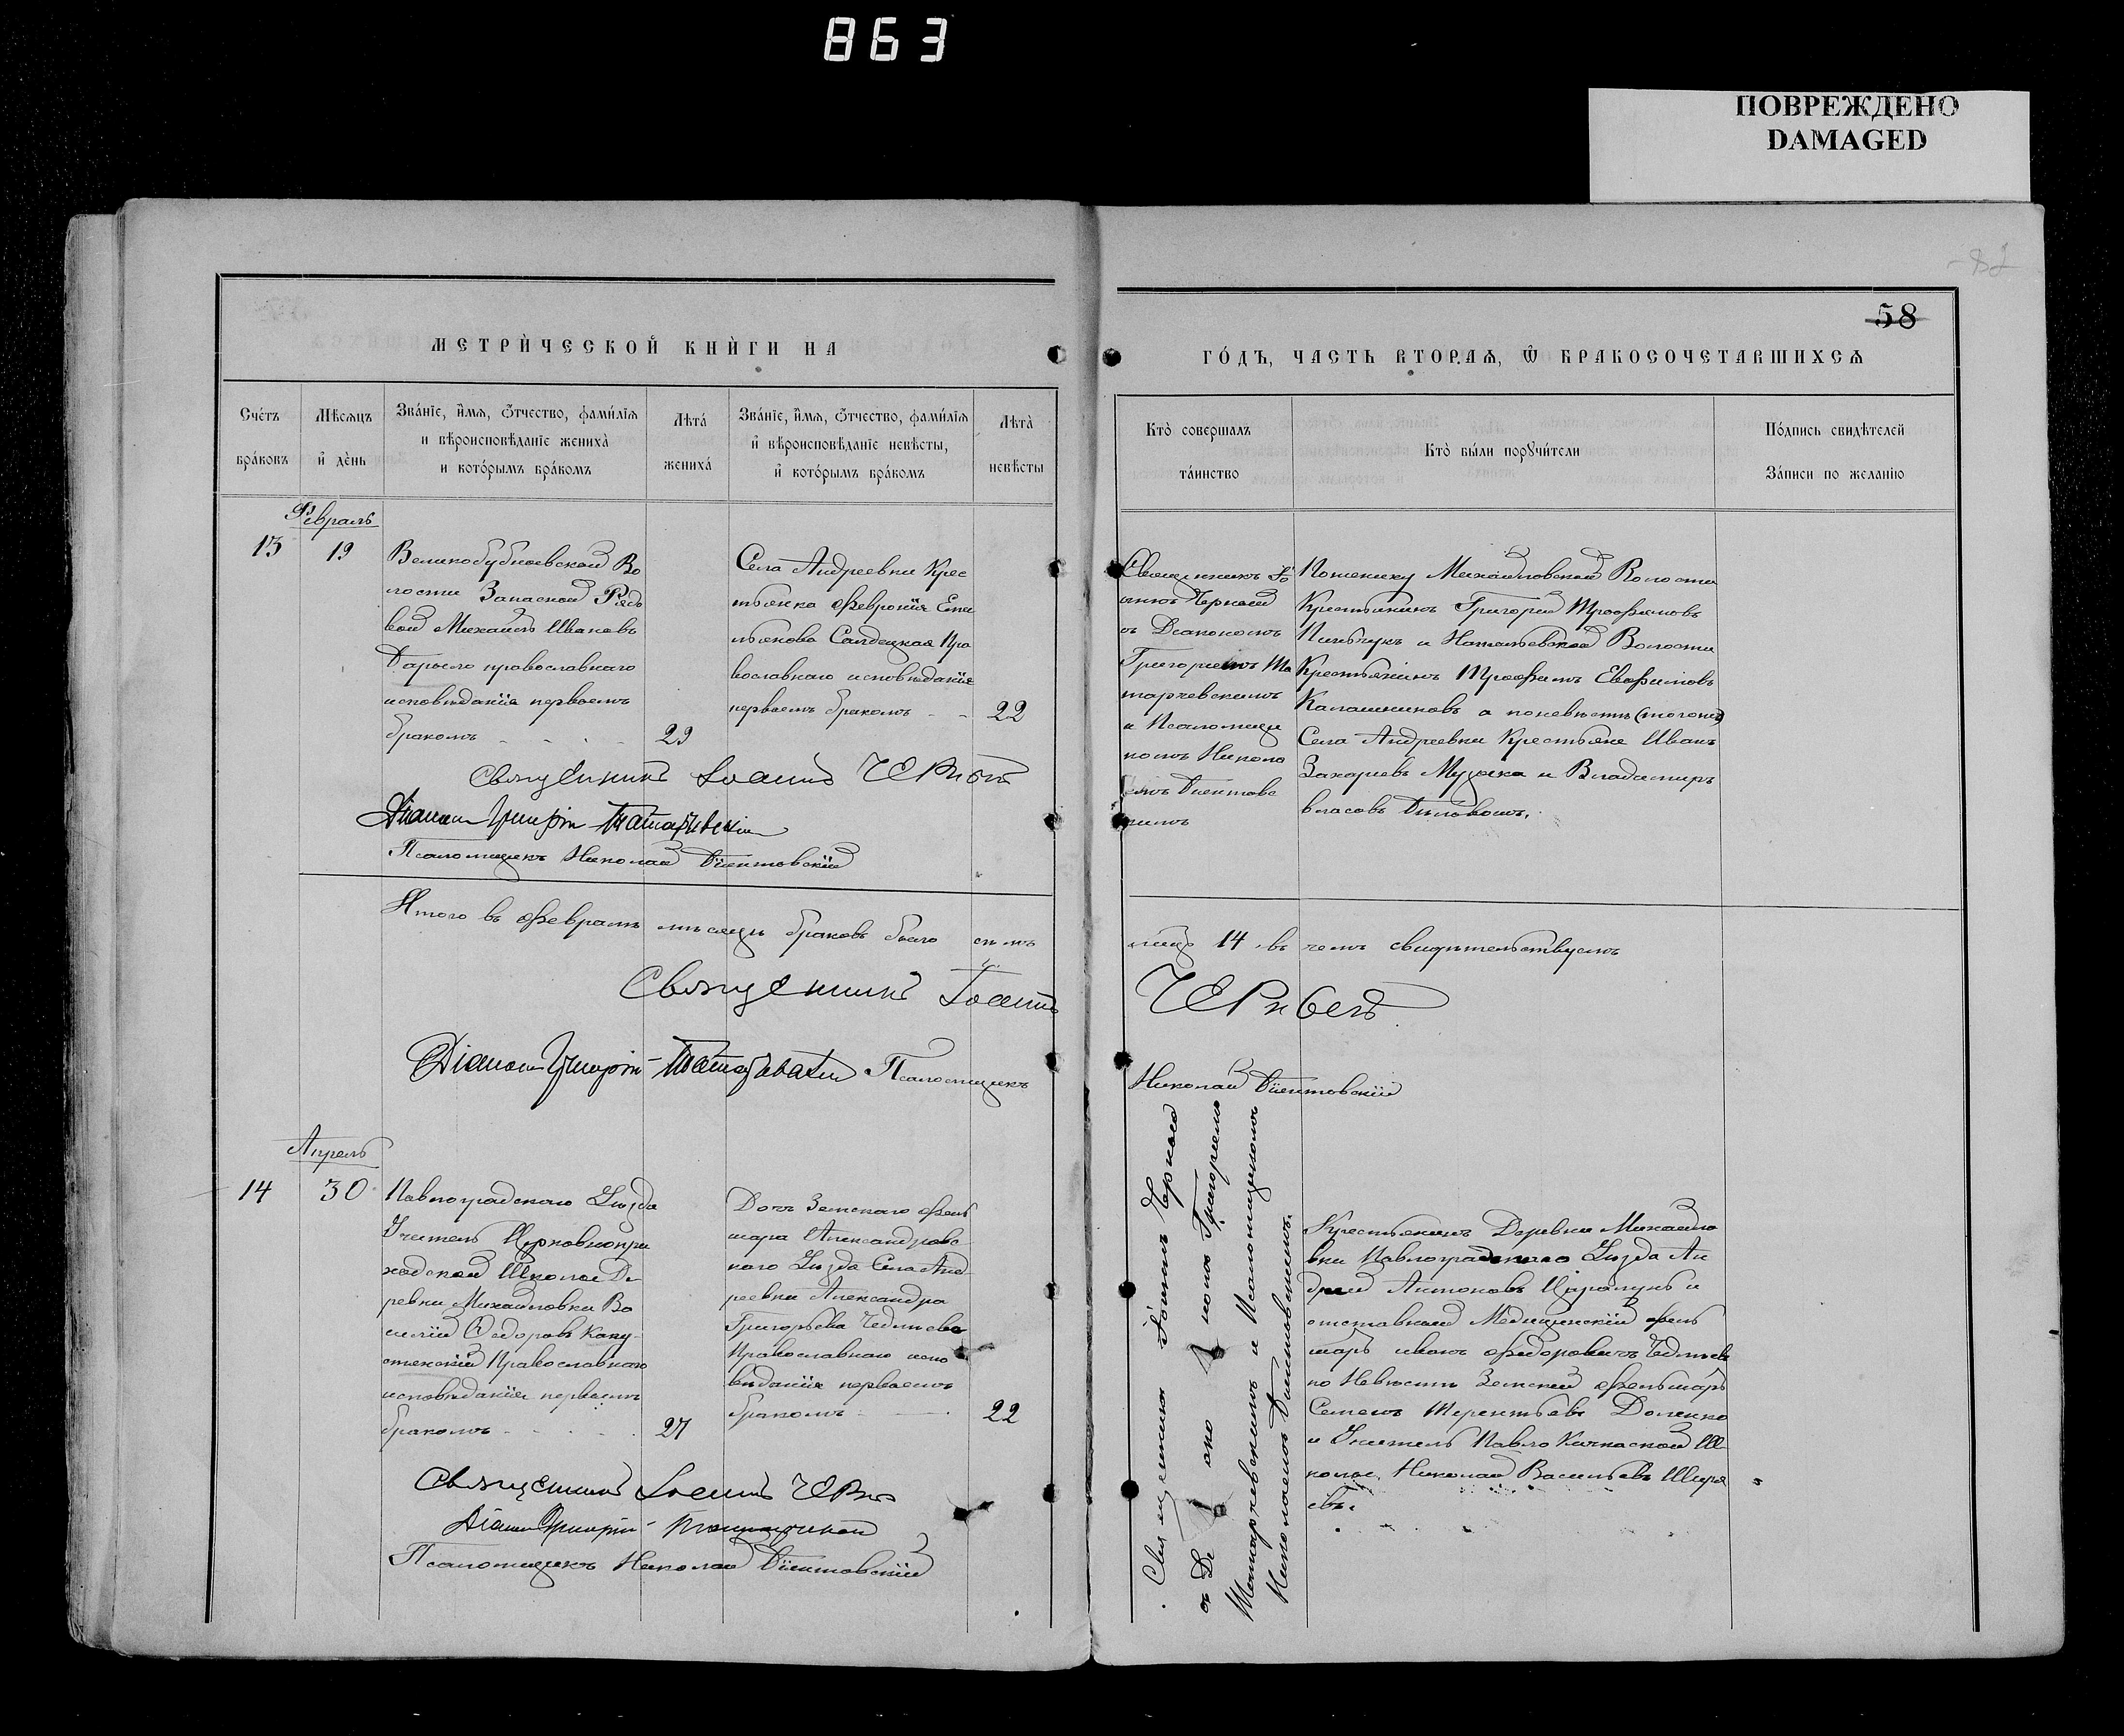 863
ПОВРЕЖДЕНО
DAMAGED
58
МЕТРИ́ЧЕСКОЙ КНИ́ГИ НА
ГО́ДЪ, ЧАСТЬ ВТОРАѦ, Ѿ БРАКОСОЧЕТАВШИХСѦ
Сче́тъ бра́ковъ
Мѣсѧцъ и де́нь
Зва́нїе, и҆́мѧ, ѻ҆́тчество, фами́лїѧ
и вѣроисповѣ́данїе жениха̀
и кото́рымъ бра́комъ
Лѣта̀ жениха́
Зва́нїе, и҆́мѧ, ѻ҆́тчество, фами́лїѧ
и҆ вѣроисповѣ́данїе невѣ́сты,
и҆ кото́рымъ бра́комъ
Лѣта̀ невѣ́сты
Кто̀ соверша́лъ
та́инство
Кто̀ бы́ли порꙋчи́тели
По́дпись свидѣ́телей
За́писи по жела́нїю
Февраль
13
19
Великобубновской Во
лости Запасной Рядо
вой Михаилъ Ивановъ
православнаго
исповѣданія первымъ
бракомъ
29
Села Андреевки Крес
тьянка Февронія Еме
льянова Православнаго исповѣданія
первымъ бракомъ
22
Священникъ Іо
аннъ Чернай
съ Діакономъ
Григоріемъ Та
таржевскимъ
и Псаломщи
комъ Никола
емъ Диктовс
кимъ
Михайловской Волости
Крестьянинъ Григорій Трофимовъ
Пильчукъ и Натальевской Волости
Крестьянинъ Трофимъ Евфимовъ
Калашниковъ а поневѣстѣ (тогоже)
Села Андреевки Крестьяне Иванъ
Захаріевъ Музыка и Владимиръ
Власовъ
Священникъ Іоаннъ
Діаконъ Григорій
Псаломщикъ Николай Диктовскій
Итого въ Февралѣ мѣсяцѣ браковъ было
14 въ чемъ свидѣтельствуемъ
Священникъ Іоаннъ
Діаконъ Григорій Псаломщикъ
Николай Диктовскій
Апрель
14
30
Павлоградскаго Уѣзда
Учитель Церковнопри
ходской Школы Де
ревни Михайловки Ва
силій Ѳедоровъ Капу
стянскій Православнаго
исповѣданія первымъ
бракомъ
27
Дочь Земскаго Фель
шара Александровс
каго Уѣзда Села Анд
реевки Александра
Григорьева
Православнаго испо
вѣданія первымъ
бракомъ
22
Священникомъ Іоанномъ
съ Діакономъ Григоріемъ
Татаржевскимъ и Псаломщикомъ
Николаемъ Диктовскимъ.
Крестьянинъ Деревни Михайло
вки Павлоградскаго Уѣзда Ан
дрей Антоновъ и
отставной Медицинскій Фель
шаръ иванъ Федоровичъ
по Невѣстѣ Земскій Фельшаръ
Семенъ Терентьевъ Доленко
и Учитель Павло Кичкаской Ш
колы, Николай Васильевъ Ширя
евъ.
Священникъ Іоаннъ
Діаконъ Григорій
Псаломщикъ Николай Диктовскій